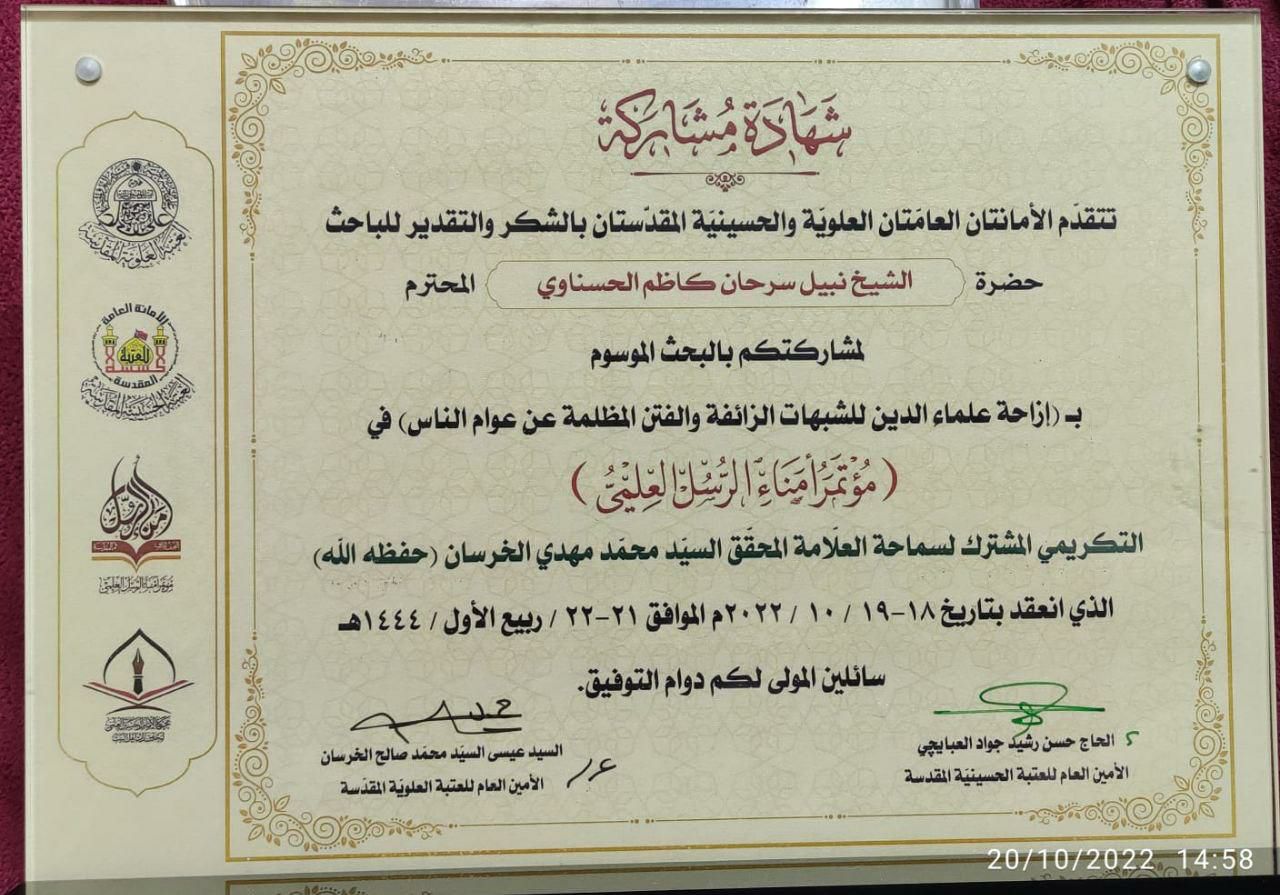 شَهَادَة مُشَارَكة
تتقدّم الأمانتان العامّتان العلويّة والحسينيّة المقدّستان بالشكر والتقدير للباحث
حضرة الشيخ نبيل سرحان كاظم الحسناوي المحترم
لمشاركتكم بالبحث الموسوم
بـ (إزاحة علماء الدين للشبهات الزائفة والفتن المظلمة عن عوام الناس) في
(مُؤْتَمَرُ أُمَنَاءِ الرُّسُلِ العِلْمِيُّ)
التكريمي المشترك لسماحة العلّامة المحقّق السيّد محمّد مهدي الخرسان (حفظه الله)
الذي انعقد بتاريخ ١٨-١٩ / ١٠ / ٢٠٢٢م الموافق ٢١-٢٢ / ربيع الأول / ١٤٤٤هـ
سائلين المولى لكم دوام التوفيق.
الحاج حسن رشيد جواد العبايچي
الأمين العام للعتبة الحسينيّة المقدسة
السيد عيسى السيّد محمّد صالح الخرسان
الأمين العام للعتبة العلويّة المقدّسة
العتبة العلوية المقدسة
الأمانة العامة
للعتبة
المقدسة
العتبة الحسينية المقدسة
أمناء الرسل
مؤتمر أمناء الرسل العلمي
20/10/2022 14:58